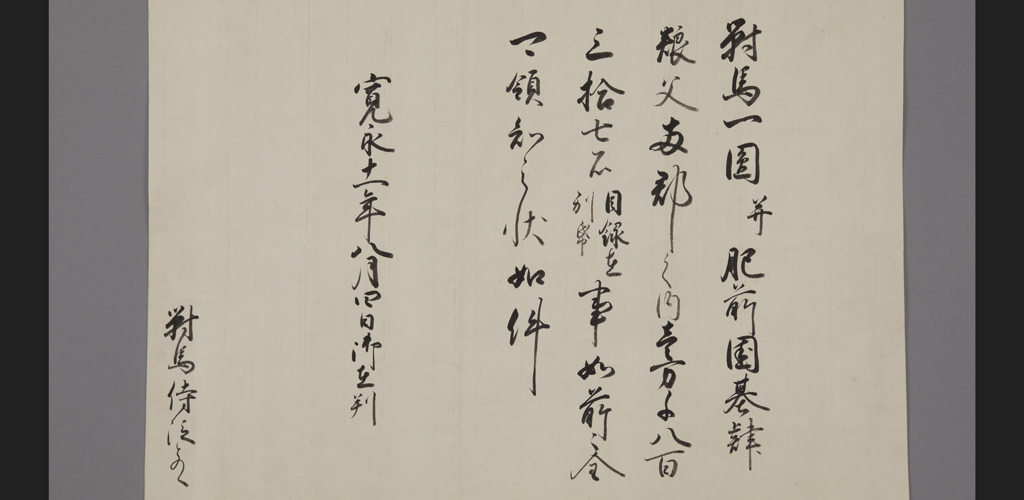 對馬一圓并肥前國基肄
養父両郡之内壱万千八百
三拾七石目録在別帋事如前々全
可領知之状如件
寛永十一年八月四日御在判
對馬侍従とのへ